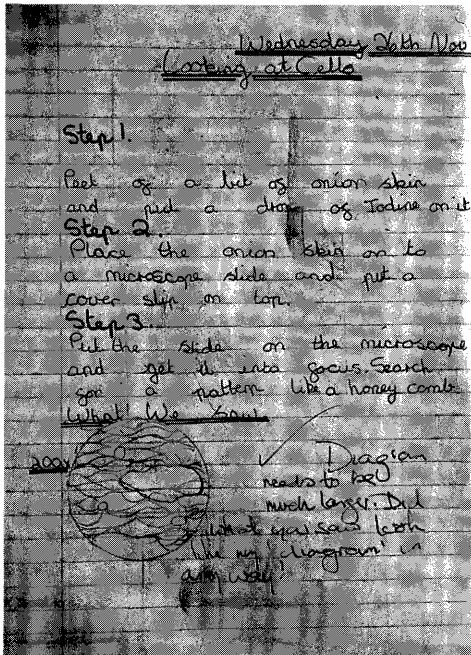 Wednesday 26th Nov
Looking at Cells
Step 1.
Peel of a bit of onion skin
and put a drop of Iodine on it
Step 2.
Place the onion skin on to
a microscope slide and put a
cover slip on top.
Step 3.
Put the slide on the microscope
and get it into focus. Search
for a pattern like a honey comb.
What We Saw
200x
Diagram
needs to be
much larger. Did
what you saw look
like my 'diagram' in
any way